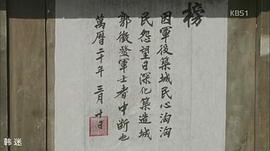 榜
因軍役築城民心洶洶
民怨望日深化築造城
郭徵發軍士者中斷也
萬曆二十年 三月 十日
KBS1
韩迷